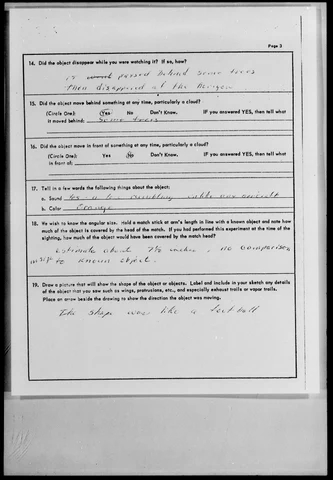 Page 3
14. Did the object disappear while you were watching it? If so, how?
it passed behind some trees
then disappeared at the Horizon
15. Did the object move behind something at any time, particularly a cloud?
(Circle One): Yes No Don't Know. IF you answered YES, then tell what
it moved behind: some trees
16. Did the object move in front of something at any time, particularly a cloud?
(Circle One): Yes No Don't Know. IF you answered YES, then tell what
in front of:
17. Tell in a few words the following things about the object:
a. Sound rumbling
b. Color orange
18. We wish to know the angular size. Hold a match stick at arm's length in line with a known object and note how
much of the object is covered by the head of the match. If you had performed this experiment at the time of the
sighting, how much of the object would have been covered by the match head?
estimate about 7½ inches, no comparison
in size to known object.
19. Draw a picture that will show the shape of the object or objects. Label and include in your sketch any details
of the object that you saw such as wings, protrusions, etc., and especially exhaust trails or vapor trails.
Place an arrow beside the drawing to show the direction the object was moving.
The shape was like a foot ball